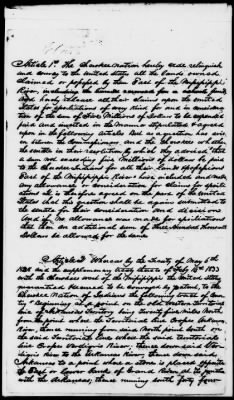 Article 1st The Cherokee Nation hereby cede relinquish
and convey to the United States all the lands owned
claimed or possessed by them East of the Mississippi
River, including the
and hereby release all their claims upon the United
States for spoliations of every kind for and in consideration
of the sum of Five Millions of Dollars to be expended
paid and invested in the manner stipulated & agreed
upon in the following articles But as a question has arisen
between the Commissioners and the Cherokees whether
the Senate in their resolution by which they advised that
a sum not exceeding five Millions of dollars be paid
to the Cherokee Indians for all their lands & possessions
East of the Mississippi River have included and made
any allowance or consideration for claims for spoliations
it is therefore agreed on the part of the United
States that this question shall be again submitted to
the Senate for their consideration and decision
and if no allowance was made for spoliations
that then an additional sum of three Hundred Thousand
Dollars be allowed for the same
Article 2 Whereas by the Treaty of May 6th
1828 and the supplementary treaty thereto of Feby 14th 1833
with the Cherokees west of the Mississippi the United States
guarantied & secured to be conveyed by patent to the
Cherokee Nation of Indians the following tract of Country
"Beginning at a point on the old western territorial
line of Arkansas Territory being twenty five miles North
from the point where the Territorial line crosses Arkansas
River, thence running from said North point South on
the said Territorial line where the said Territorial
line crosses Verdigris River; thence down said Verdigris
River to the Arkansas River; thence down said
Arkansas to a point where a stone is placed opposite
the East or lower bank of Grand River at its junction
with the Arkansas; thence running South forty four